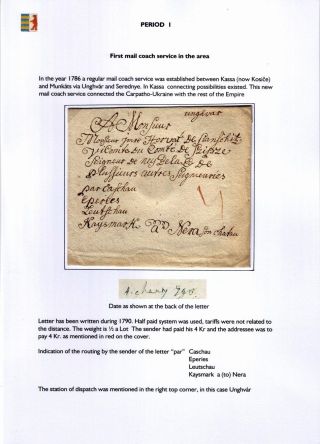 PERIOD 1
First mail coach service in the area
In the year 1786 a regular mail coach service was established between Kassa (now Kosiče)
and Munkáts via Unghvár and Serednye. In Kassa connecting possibilities existed. This new
mail coach service connected the Carpatho-Ukraine with the rest of the Empire
unghvar
A Monsieur
Monsieur
Vicomte du Comte de
Seigneur de
Plussieurs autres Seigneuries
par Caschau
Eperies
Leutschau
Kaysmark Nera
Date as shown at the back of the letter
Letter has been written during 1790. Half paid system was used, tariffs were not related to
the distance. The weight is ½ a Lot The sender had paid his 4 Kr and the addressee was to
pay 4 Kr. as mentioned in red on the cover.
Indication of the routing by the sender of the letter "par" Caschau
Eperies
Leutschau
Kaysmark a (to) Nera
The station of dispatch was mentioned in the right top corner, in this case Unghvár